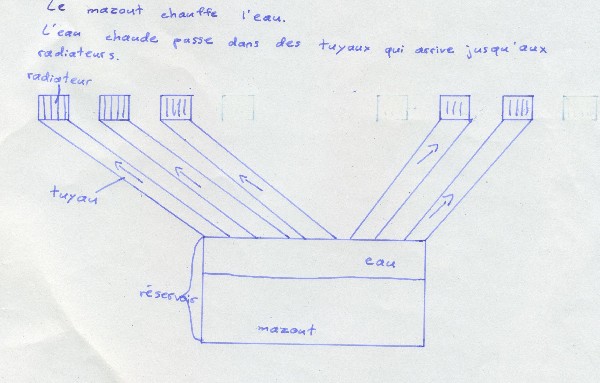 Le mazout chauffe l'eau.
L'eau chaude passe dans des tuyaux qui arrive jusqu'aux
radiateurs.
radiateur
tuyau
eau
réservoir
mazout